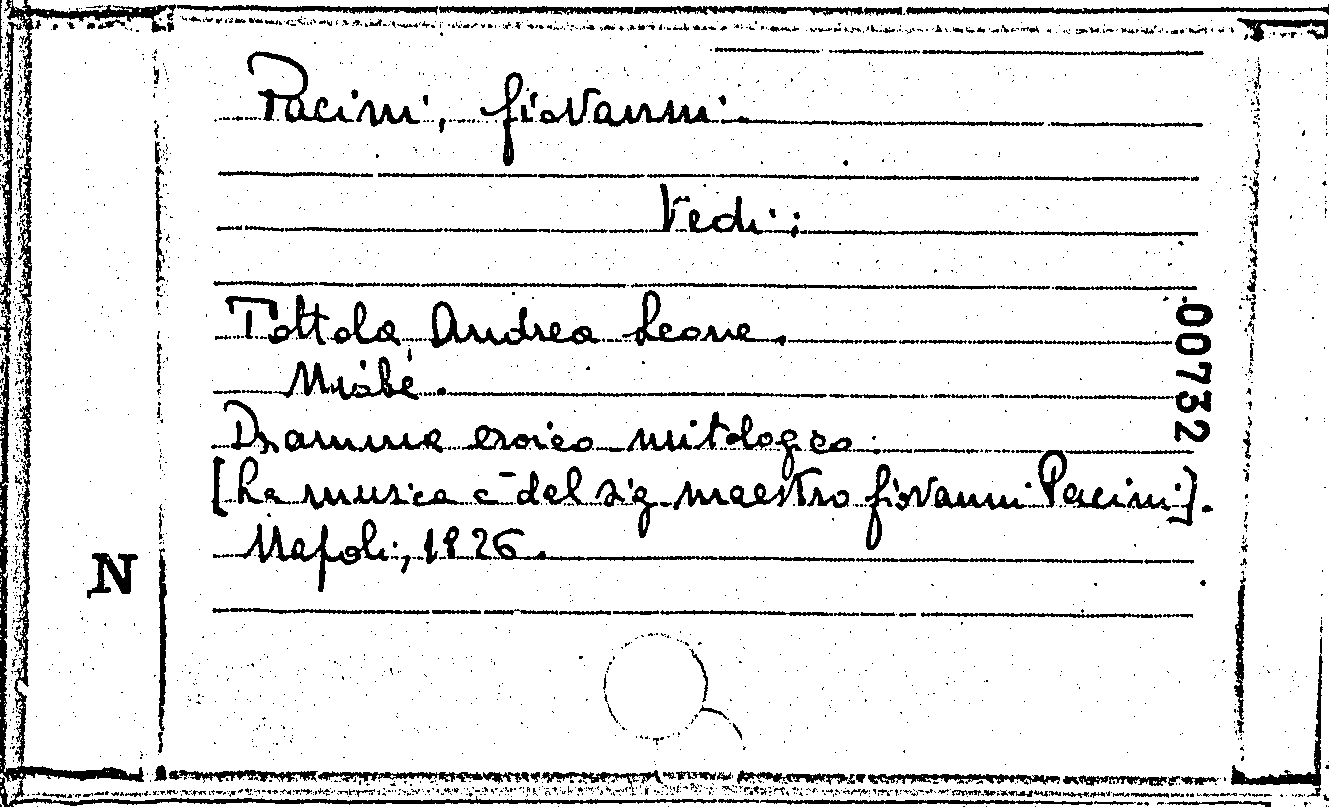 Pacini, Giovanni.
Vedi:
Tottola, Andrea Leone.
Niobe.
Dramma eroico mitologico.
[La musica è del sig. maestro Giovanni Pacini].
Napoli, 1826.
N
00732